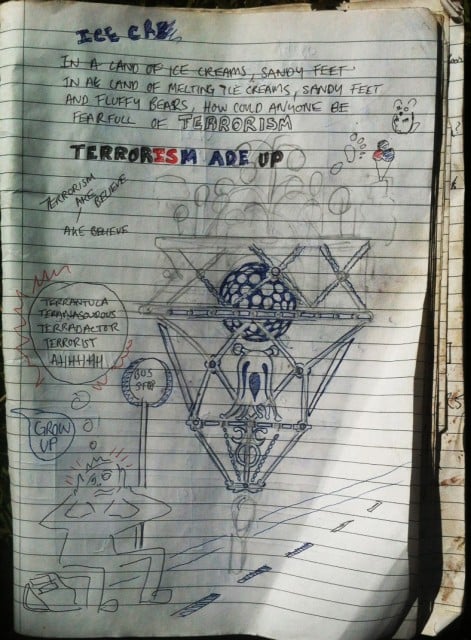 ICE
IN A LAND OF ICE CREAMS, SANDY FEET
IN A LAND OF MELTING ICE CREAMS, SANDY FEET
AND FLUFFY BEARS, HOW COULD ANYONE BE
FEARFULL OF TERRORISM
TERRORISM ADE UP
TERRORISM
AKE BELIEVE
AKE BELIEVE
TERRANTULA
TERRADACTOR
TERRORIST
AHHHHH
BUS
STOP
GROW
UP